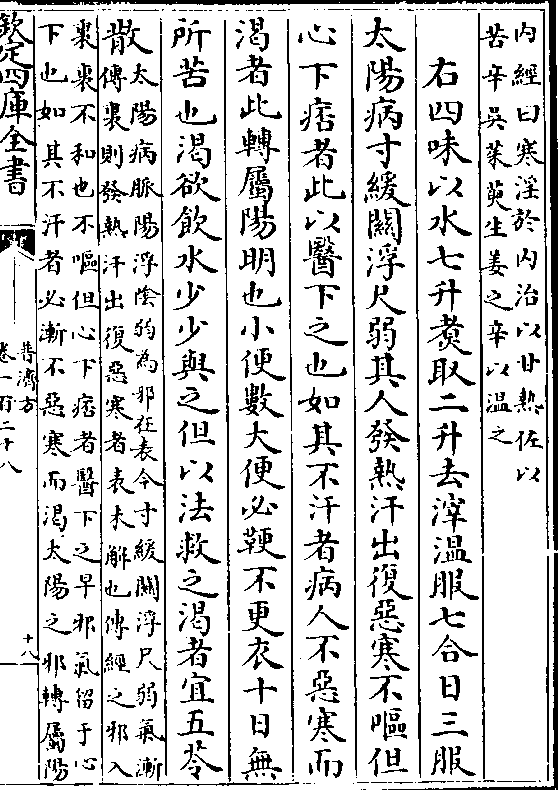 内經曰寒淫於内治以甘熱佐以
苦辛吳茱萸生姜之辛以温之
右四味以水七升煑取二升去滓温服七合日三服
太陽病寸緩關浮尺弱其人發熱汗出復惡寒不嘔但
心下痞者此以醫下之也如其不汗者病人不惡寒而
渴者此轉屬陽明也小便數大便必鞕不更衣十日無
所苦也渴欲飲水少少與之但以法救之渴者宜五苓
散太陽病脈陽浮陰弱為邪在表今寸緩關浮尺弱氣漸
傳裏則發熱汗出復惡寒者表未解也傳經之邪入
裏裏不和也不嘔但心下痞者醫下之早邪氣留于心
下也如其不汗者必漸不惡寒而渴太陽之邪轉屬陽
欽定四庫全書
普濟方
卷一百二十八
十八